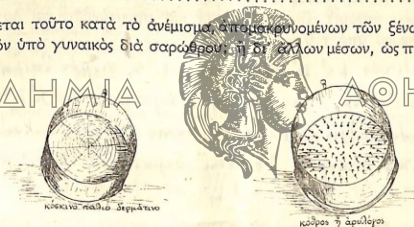 εται τοῦτο κατὰ τὸ ἀνέμισμα, ἀπομακρυνομένων τῶν ξένω
ὸν ὑπὸ γυναικὸς διὰ σαρώθρου; ἢ δι' ἄλλων μέσων, ὡς π
ΔΗΜΙΑ
ΑΘΗ
κόσκινο παλιὸ δερμάτινο
κόθρος ἢ ἀρυλόγος